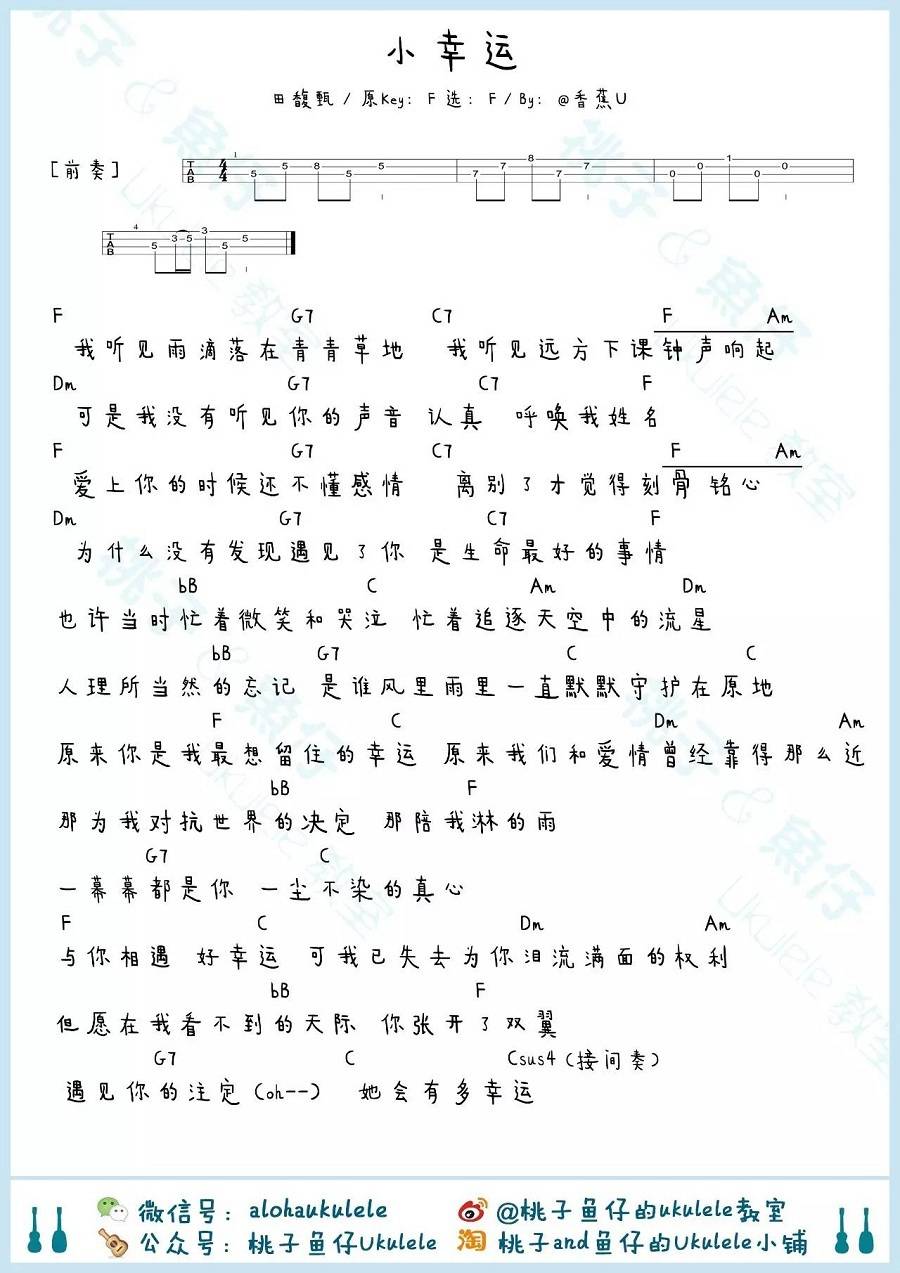 小幸运
田馥甄 / 原Key: F 选: F / By: @香蕉U
[前奏]
1
T A B 4/4 5 5 8 5 5 7 7 8 7 7 0 0 1 0 0
4
T A B 5 3 5 3 5 5
F G7 C7 F Am
我听见雨滴落在青青草地 我听见远方下课钟声响起
Dm G7 C7 F
可是我没有听见你的声音 认真 呼唤我姓名
F G7 C7 F Am
爱上你的时候还不懂感情 离别了才觉得刻骨 铭心
Dm G7 C7 F
为什么没有发现遇见了你 是生命最好的事情
bB C Am Dm
也许当时忙着微笑和哭泣 忙着追逐天空中的流星
bB G7 C C
人理所当然的忘记 是谁风里雨里一直默默守护在原地
F C Dm Am
原来你是我最想留住的幸运 原来我们和爱情曾经靠得那么近
bB F
那为我对抗世界的决定 那陪我淋的雨
G7 C
一幕幕都是你 一尘不染的真心
F C Dm Am
与你相遇 好幸运 可我已失去为你泪流满面的权利
bB F
但愿在我看不到的天际 你张开了双翼
G7 C Csus4 (接间奏)
遇见你的注定 (oh--) 她会有多幸运
微信号: alohaukulele
@桃子鱼仔的ukulele教室
公众号: 桃子鱼仔Ukulele
淘 桃子and鱼仔的Ukulele小铺
桃子 & 魚仔 Ukulele 教室
桃子 & 魚仔 Ukulele 教室
桃子 & 魚仔 Ukulele 教室
桃子 & 魚仔 Ukulele 教室